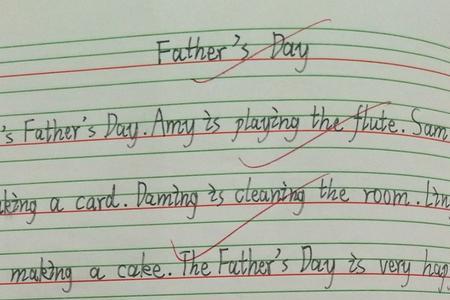 Father's Day
's Father's Day. Amy is playing the flute. Sam
king a card. Daming is cleaning the room. Lin
making a cake. The Father's Day is very hap